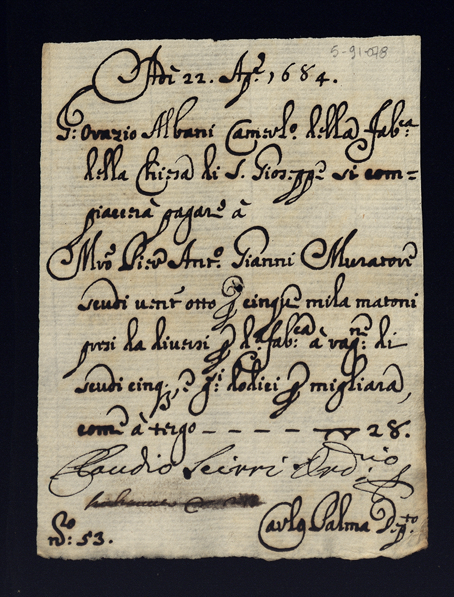 5-91-078
Adi 22. Ag.º 1684.
S.r Orazio Albani Camerl.º della Fab.ca
della Chiesa di S. Gioseppe si com=
piacerà pagare à
M.ro Pier Ant.º Gianni Muratore
scudi vent'otto p cinque mila matoni
presi da diversi p d.a fab.ca à rag.ne di
scudi cinq., e g.i dodici p migliara,
come à tergo — — — — — 28.
Claudio Scirri Ord.rio
Carlo Palma D.to
N.º 53.